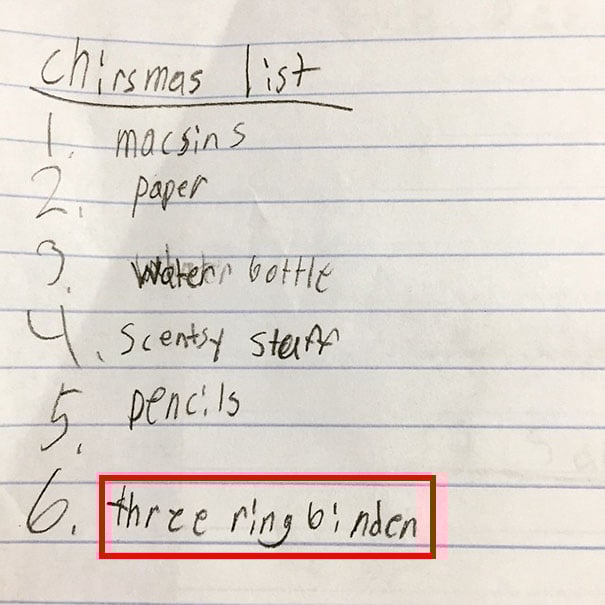 chirsmas list
1. macsins
2. paper
3. water bottle
4. Scentsy staff
5. pencils
6. three ring binden